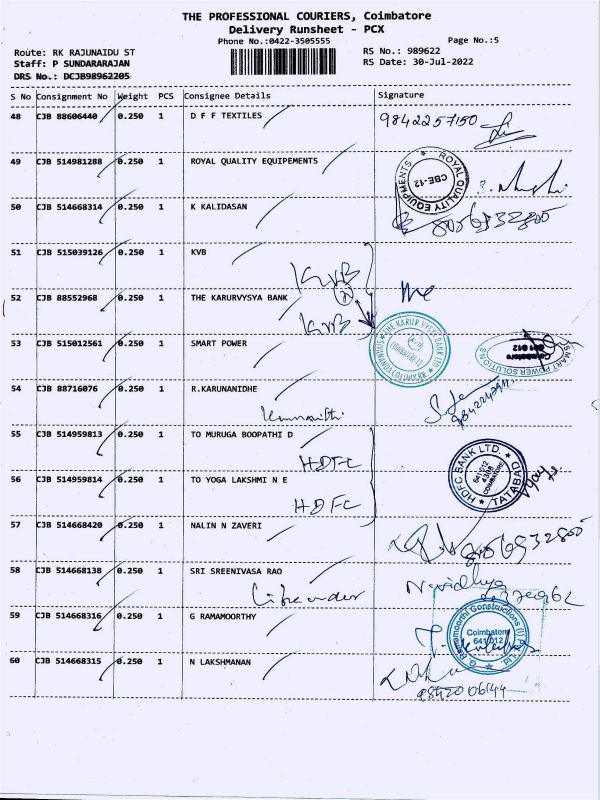 THE PROFESSIONAL COURIERS, Coimbatore
Delivery Runsheet - PCX
Phone No.:0422-3505555
Page No.:5
Route: RK RAJUNAIDU ST
RS No.: 989622
Staff: P SUNDARARAJAN
RS Date: 30-Jul-2022
DRS No.: DCJB98962205
S No Consignment No Weight PCS Consignee Details Signature
48 CJB 88606440 0.250 1 D F F TEXTILES 9842257150
49 CJB 514981288 0.250 1 ROYAL QUALITY EQUIPEMENTS
ROYAL QUALITY EQUIPMENTS
CBE-12
50 CJB 514668314 0.250 1 K KALIDASAN 8056932805
51 CJB 515039126 0.250 1 KVB
KVB
52 CJB 88552968 0.250 1 THE KARURVYSYA BANK
KVB
THE KARUR VYSYA BANK LTD
53 CJB 515012561 0.250 1 SMART POWER
SMART POWER SOLUTIONS
Coimbatore
641 012
54 CJB 88716076 0.250 1 R.KARUNANIDHE
55 CJB 514959813 0.250 1 TO MURUGA BOOPATHI D
HDFC
HDFC BANK LTD.
641012
COIMBATORE
TATABAD
56 CJB 514959814 0.250 1 TO YOGA LAKSHMI N E
HDFC
57 CJB 514668420 0.250 1 NALIN N ZAVERI 8056932805
58 CJB 514668138 0.250 1 SRI SREENIVASA RAO
59 CJB 514668316 0.250 1 G RAMAMOORTHY
G Ramamoorthi Constructions (I) P. Ltd.
Coimbatore
641 012
60 CJB 514668315 0.250 1 N LAKSHMANAN
9842006144